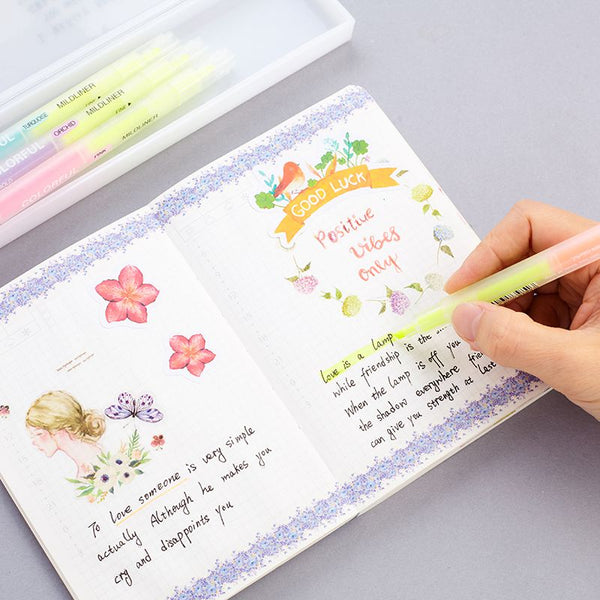 TURQUOISE
MILDLINER
FINE
ORCHID
MILDLINER
FINE
COLORFUL
PINK
MILDLINER
COLORFUL
GOOD LUCK
Positive
vibes
only
Love is a lamp
while friendship is the
When the lamp is off you
the shadow everywhere
can give you strength at last
To love someone is very simple
actually Although he makes you
cry and disappoints you